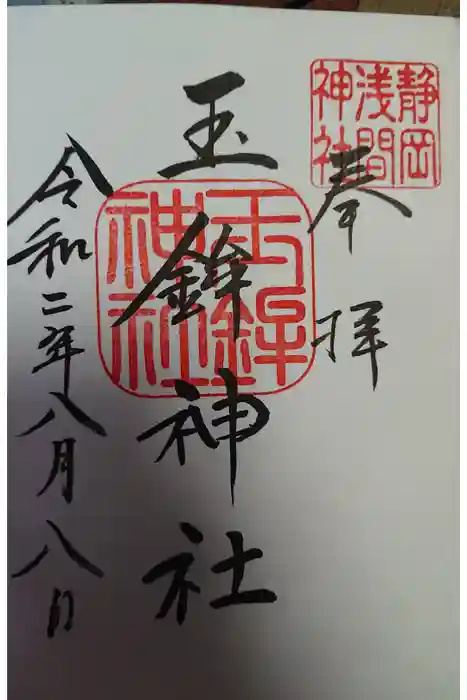 静岡
浅間
神社
奉拝
玉鉾神社
玉鉾
神社
令和二年八月八日